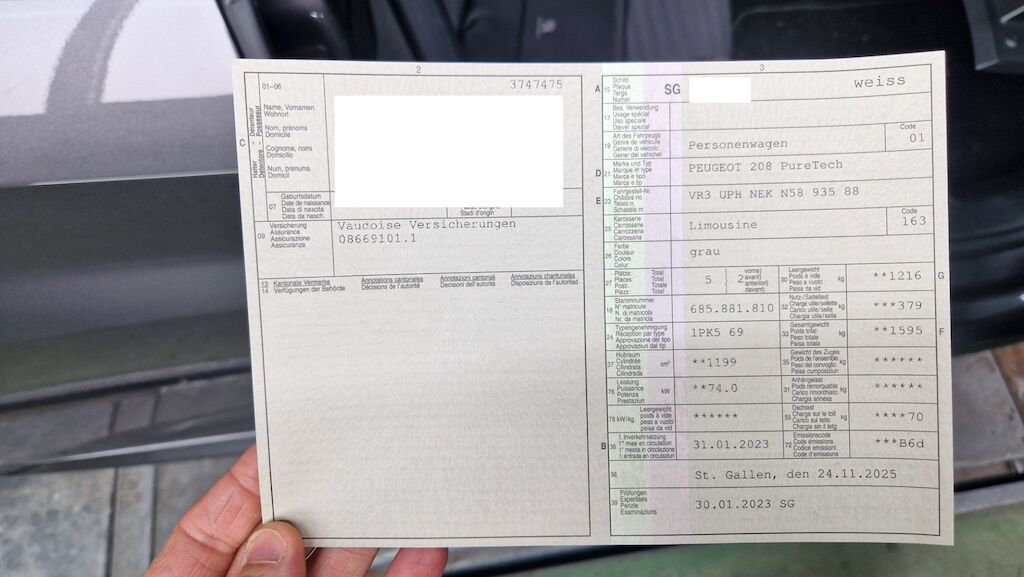 2
01–06
3747475
C
Halter - Détenteur
Detentore - Possessur
Name, Vornamen
Wohnort
Nom, prénoms
Domicile
Cognome, nomi
Domicilio
Num, prenums
Domicil
07
Geburtsdatum
Date de naissance
Data di nascita
Data da nasch.
Stadi d'origin
09
Versicherung
Assurance
Assicurazione
Assicuranza
Vaudoise Versicherungen
08669101.1
13
14
Kantonale Vermerke
Verfügungen der Behörde
Annotations cantonales
Décisions de l'autorité
Annotazioni cantonali
Decisioni dell'autorità
Annotaziuns chantunalas
Disposiziuns da l'autoritad
3
A
15
Schild
Plaque
Targa
Numer
SG
weiss
17
Bes. Verwendung
Usage spécial
Uso speciale
Diever spezial
19
Art des Fahrzeugs
Genre de véhicule
Genere di veicolo
Gener dal vehichel
Personenwagen
Code
01
D
21
Marke und Typ
Marque et type
Marca e tipo
Marca e tip
PEUGEOT 208 PureTech
E
23
Fahrgestell-Nr.
Châssis no
Telaio n.
Schassis nr.
VR3 UPH NEK N58 935 88
25
Karosserie
Carrosserie
Carrozzeria
Carossaria
Limousine
Code
163
26
Farbe
Couleur
Colore
Colur
grau
27
Plätze: Total
Places: Total
Posti: Totale
Plazs: Total
5
2
vorne)
avant)
anteriori)
davant)
30
Leergewicht
Poids à vide
Peso a vuoto
Paisa da vid
kg
**1216
G
18
Stammnummer
N° matricule
N. di matricola
Nr. da matricla
685.881.810
32
Nutz-/Sattellast
Charge utile/sellette
Carico utile/sella
Chargia utila/sella
kg
***379
24
Typengenehmigung
Réception par type
Approvazione del tipo
Approvaziun dal tip
1PK5 69
33
Gesamtgewicht
Poids total
Peso totale
Paisa totala
kg
**1595
F
37
Hubraum
Cylindrée
Cilindrata
Cilindrada
cm³
**1199
35
Gewicht des Zuges
Poids de l'ensemble
Peso del convoglio
Paisa cumposiziun
kg
******
76
Leistung
Puissance
Potenza
Prestaziun
kW
**74.0
31
Anhängelast
Poids remorquable
Carico rimorchiato
Chargia annexa
kg
******
78 kW/kg
Leergewicht
poids à vide
peso a vuoto
paisa da vid
******
55
Dachlast
Charge sur le toit
Carico sul tetto
Chargia sin il tetg
kg
****70
B
36
1. Inverkehrsetzung
1re mise en circulation
1a messa in circolazione
1. entrada en circulaziun
31.01.2023
72
Emissionscode
Code émissions
Codice emissioni
Code d'emissiuns
***B6d
38
St. Gallen, den 24.11.2025
39
Prüfungen
Expertises
Perizie
Examinaziuns
30.01.2023 SG